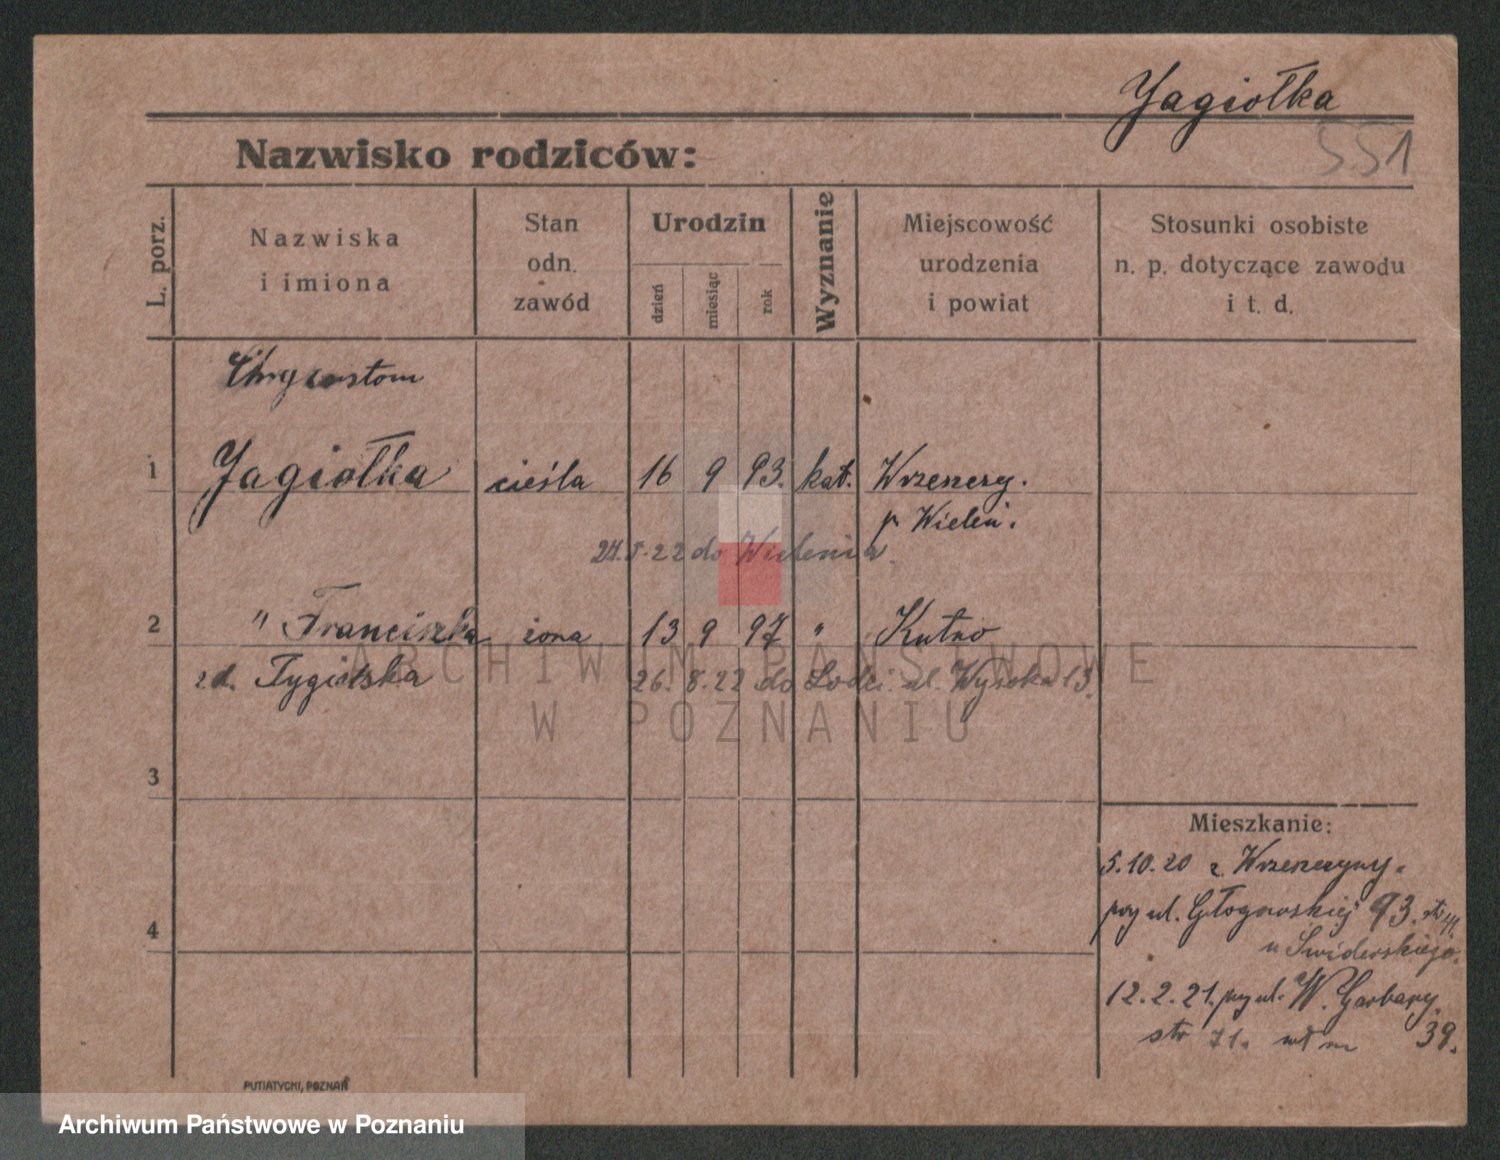 Jagiołka
551
Nazwisko rodziców:
L. porz.
Nazwiska
i imiona
Stan
odn.
zawód
Urodzin
dzień
miesiąc
rok
Wyznanie
Miejscowość
urodzenia
i powiat
Stosunki osobiste
n. p. dotyczące zawodu
i t. d.
1
Jagiołka cieśla 16 9 93. kat.
p Wieleń.
do Wielenia
2 " Franciszka żona 13 9 97 " Kutno
zd. 26. 8. 22 do Łodzi ul. Wysoka 13.
3
4
Mieszkanie:
5.10.20 z
przy ul. Głogowskiej 93.
u Swiderskiego.
12.2.21. przy ul. W. Garbary
39.
PUTIATYCKI, POZNAŃ
ARCHIWUM PAŃSTWOWE
W POZNANIU
Archiwum Państwowe w Poznaniu